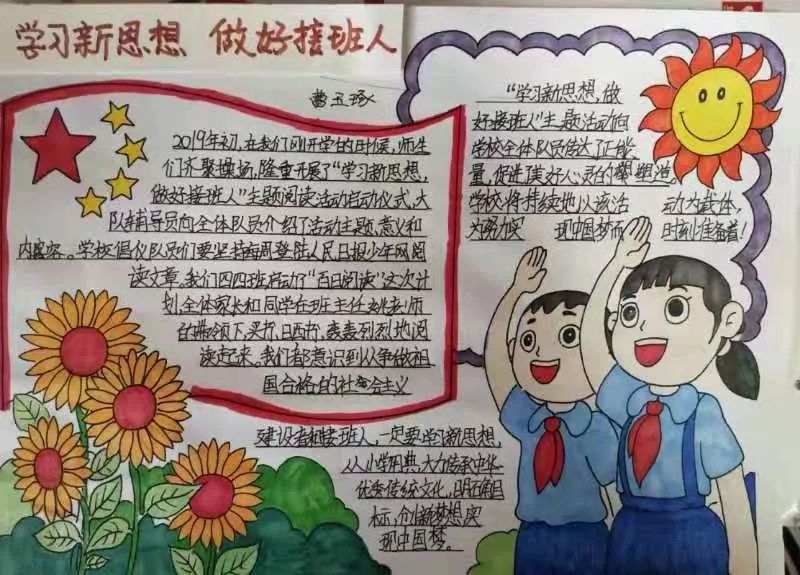 学习新思想 做好接班人
曹玉琢
2019年初,在我们刚开学的时候,师生
们齐聚操场,隆重开展了"学习新思想,
做好接班人"主题阅读活动启动仪式,大
队辅导员向全体队员介绍了活动主题,意义和
内容。学校倡仪队员们要坚持每周登陆人民日报少年网阅
读文章。我们四四班启动了"百日阅读"这次计
划,全体家长和同学在班主任老师
的带领下,买书,日西书,轰轰烈烈地阅
读起来。我们都意识到从争做祖
国合格的社会主义
建设者和接班人,一定要学习新思想,
从小学用典,大力传承中华
优秀传统文化,明确目
标,创新梦想,实
现中国梦。
"学习新思想,做
好接班人"主题活动向
学校全体队员传达了正能
量,促进了美好心灵的塑造。
学校将持续地以该活 动为载体,
为努力实 现中国梦而 时刻准备着!